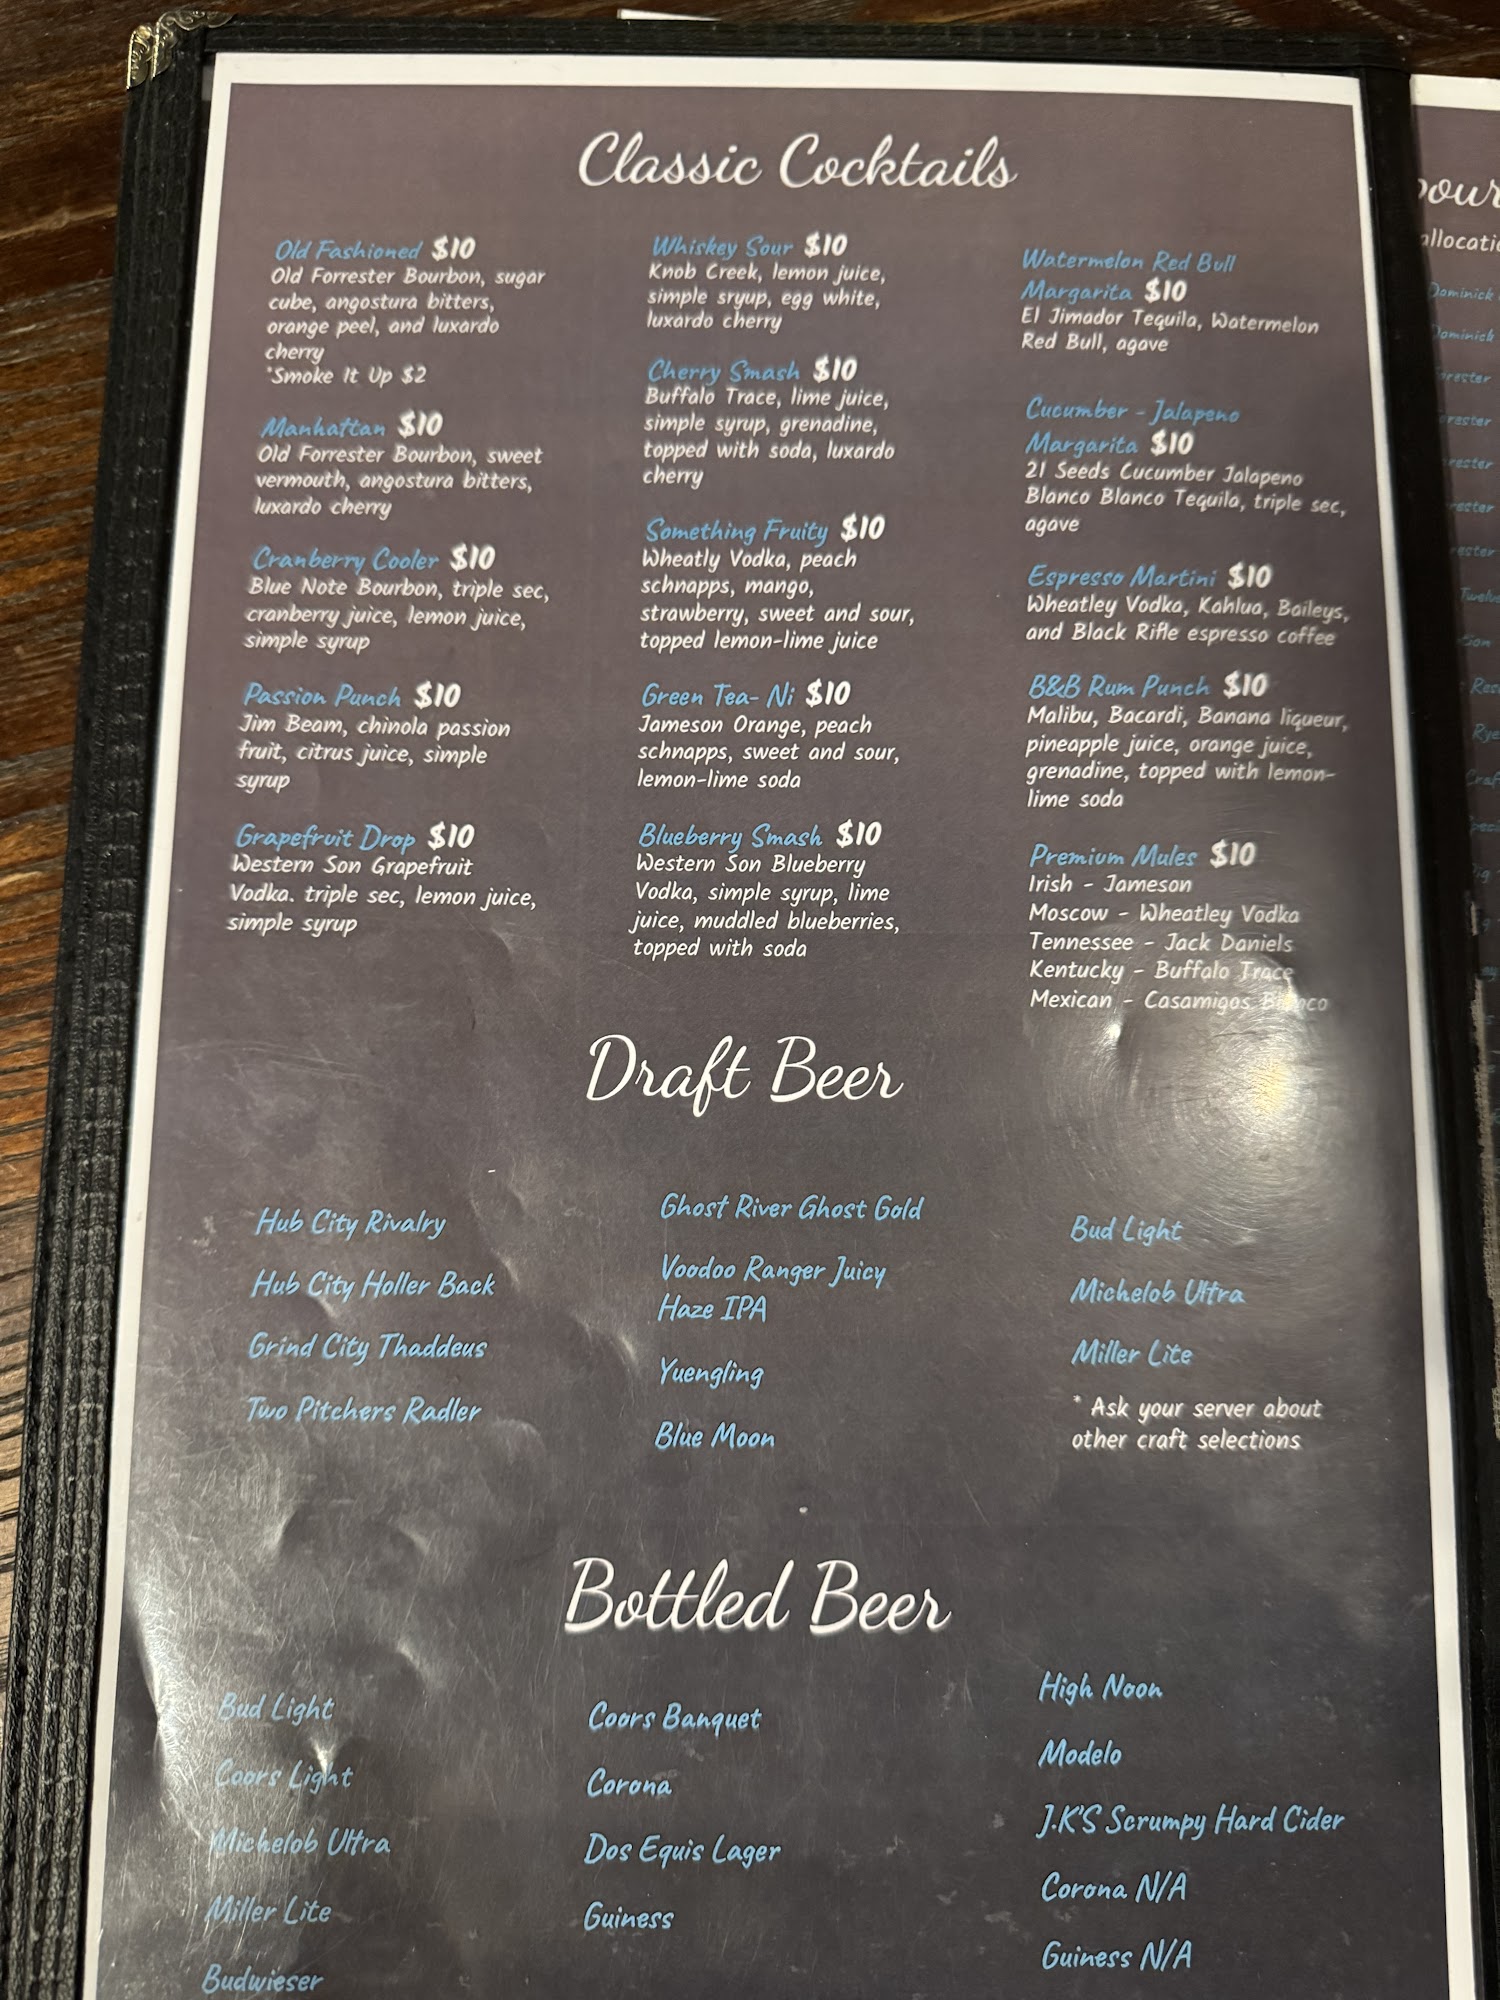 Classic Cocktails
Old Fashioned $10
Old Forrester Bourbon, sugar
cube, angostura bitters,
orange peel, and luxardo
cherry
*Smoke It Up $2
Manhattan $10
Old Forrester Bourbon, sweet
vermouth, angostura bitters,
luxardo cherry
Cranberry Cooler $10
Blue Note Bourbon, triple sec,
cranberry juice, lemon juice,
simple syrup
Passion Punch $10
Jim Beam, chinola passion
fruit, citrus juice, simple
syrup
Grapefruit Drop $10
Western Son Grapefruit
Vodka. triple sec, lemon juice,
simple syrup
Whiskey Sour $10
Knob Creek, lemon juice,
simple sryup, egg white,
luxardo cherry
Cherry Smash $10
Buffalo Trace, lime juice,
simple syrup, grenadine,
topped with soda, luxardo
cherry
Something Fruity $10
Wheatly Vodka, peach
schnapps, mango,
strawberry, sweet and sour,
topped lemon-lime juice
Green Tea- Ni $10
Jameson Orange, peach
schnapps, sweet and sour,
lemon-lime soda
Blueberry Smash $10
Western Son Blueberry
Vodka, simple syrup, lime
juice, muddled blueberries,
topped with soda
Watermelon Red Bull
Margarita $10
El Jimador Tequila, Watermelon
Red Bull, agave
Cucumber - Jalapeno
Margarita $10
21 Seeds Cucumber Jalapeno
Blanco Blanco Tequila, triple sec,
agave
Espresso Martini $10
Wheatley Vodka, Kahlua, Baileys,
and Black Rifle espresso coffee
B&B Rum Punch $10
Malibu, Bacardi, Banana liqueur,
pineapple juice, orange juice,
grenadine, topped with lemon-
lime soda
Premium Mules $10
Irish - Jameson
Moscow - Wheatley Vodka
Tennessee - Jack Daniels
Kentucky - Buffalo Trace
Mexican - Casamigos Blanco
Draft Beer
Hub City Rivalry
Hub City Holler Back
Grind City Thaddeus
Two Pitchers Radler
Ghost River Ghost Gold
Voodoo Ranger Juicy
Haze IPA
Yuengling
Blue Moon
Bud Light
Michelob Ultra
Miller Lite
* Ask your server about
other craft selections
Bottled Beer
Bud Light
Coors Light
Michelob Ultra
Miller Lite
Budwieser
Coors Banquet
Corona
Dos Equis Lager
Guiness
High Noon
Modelo
J.K'S Scrumpy Hard Cider
Corona N/A
Guiness N/A
Dominick
Dominick